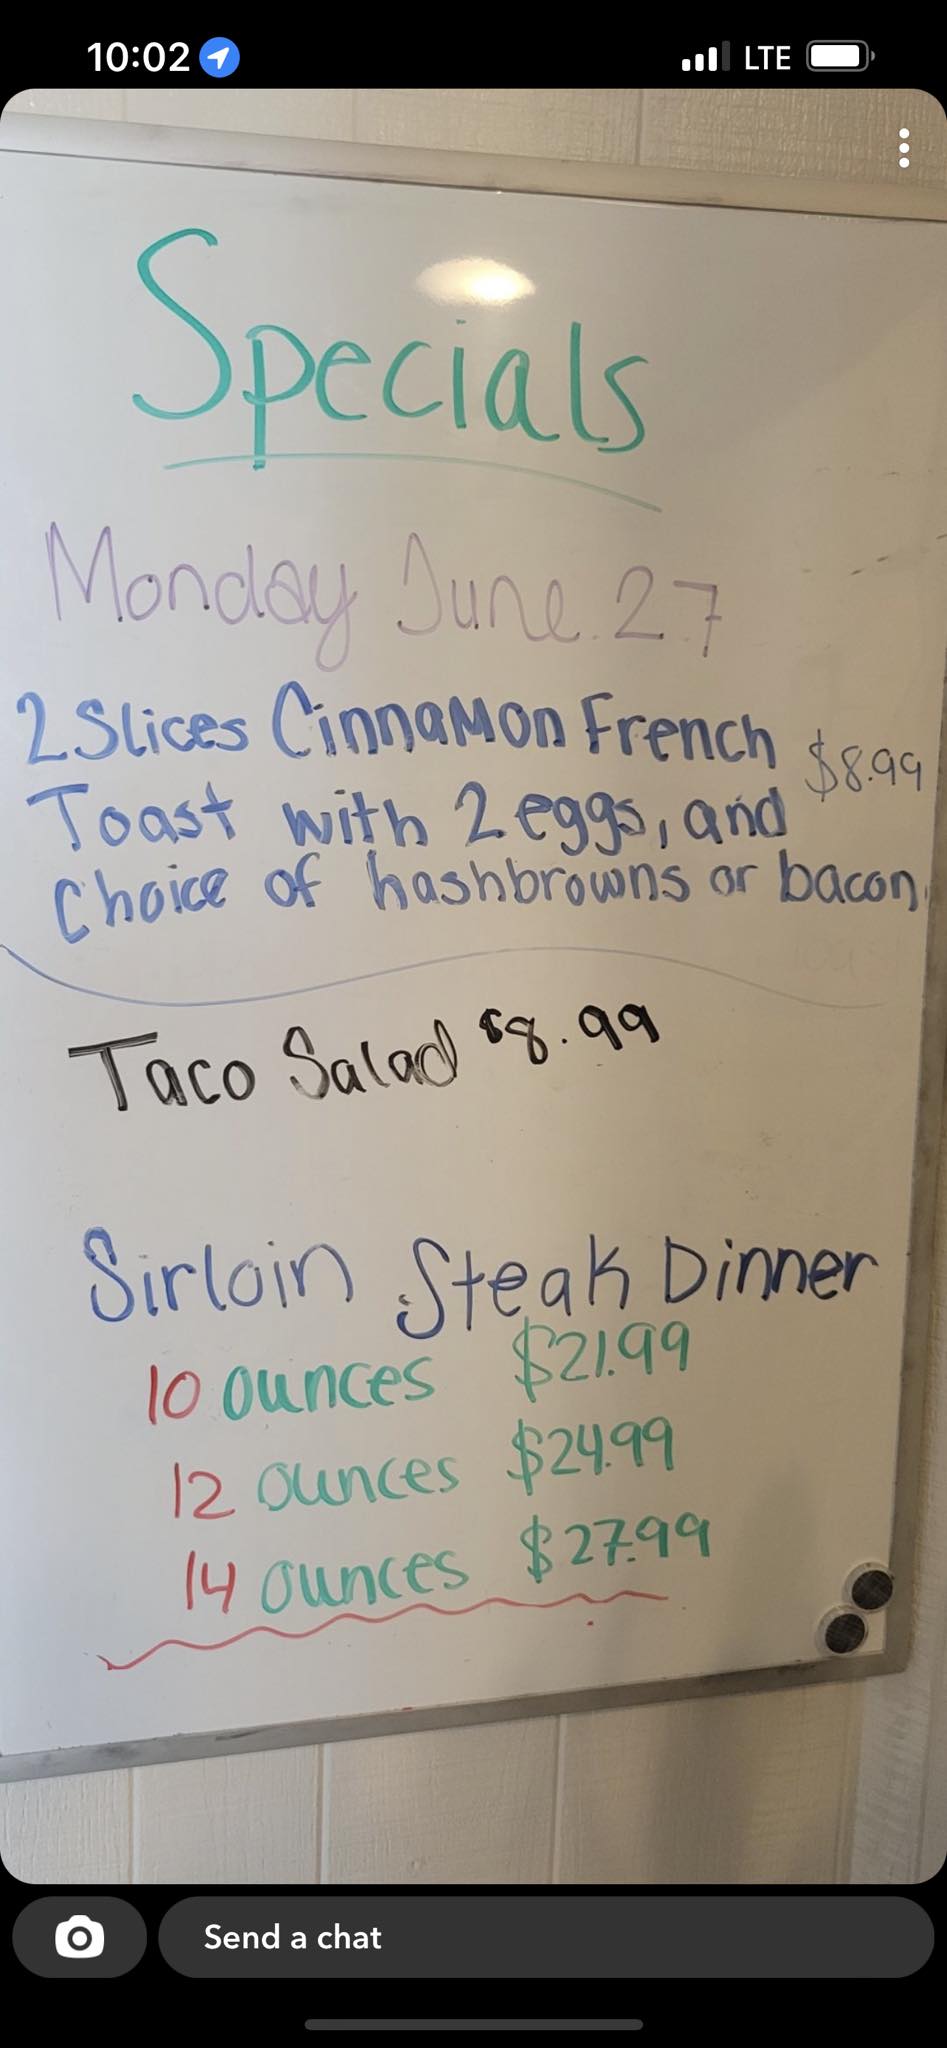 10:02
LTE
Specials
Monday June 27
2 Slices Cinnamon French
$8.99
Toast with 2 eggs, and
Choice of hashbrowns or bacon.
Taco Salad $8.99
Sirloin Steak Dinner
10 ounces $21.99
12 ounces $24.99
14 ounces $27.99
Send a chat